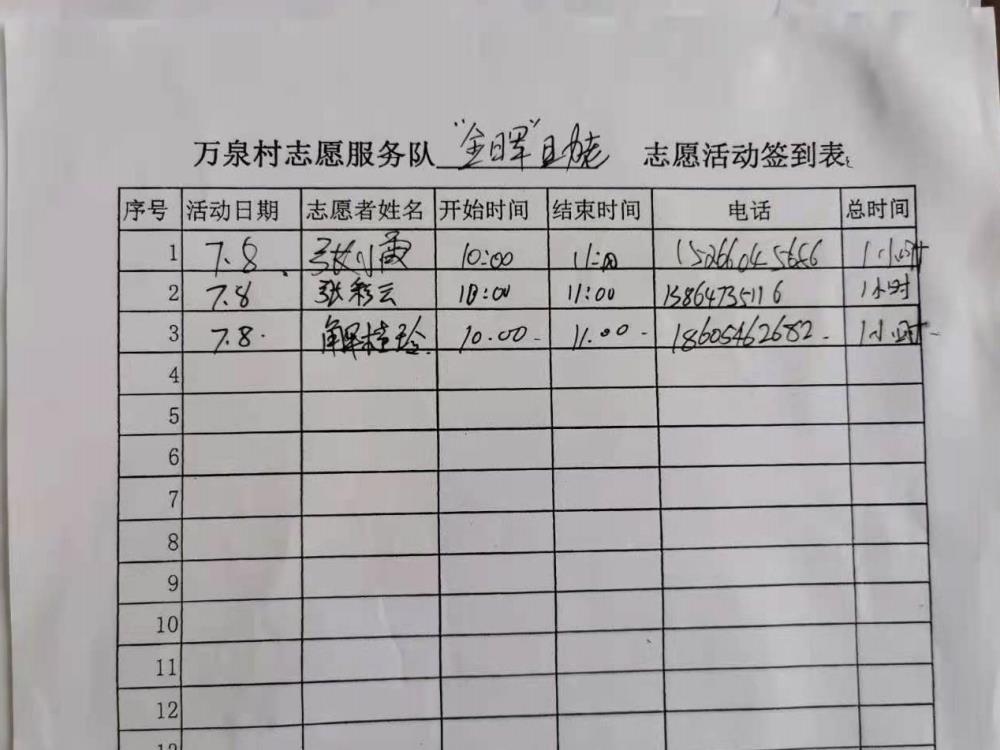 万泉村志愿服务队 "金晖"助老 志愿活动签到表
序号 活动日期 志愿者姓名 开始时间 结束时间 电话 总时间
1 7.8. 张小霞 10:00 11:00 15266045686 1小时
2 7.8 张彩云 10:00 11:00 13864735116 1小时
3 7.8. 解桂玲 10.00 11.00 18605462682 1小时
4
5
6
7
8
9
10
11
12
13